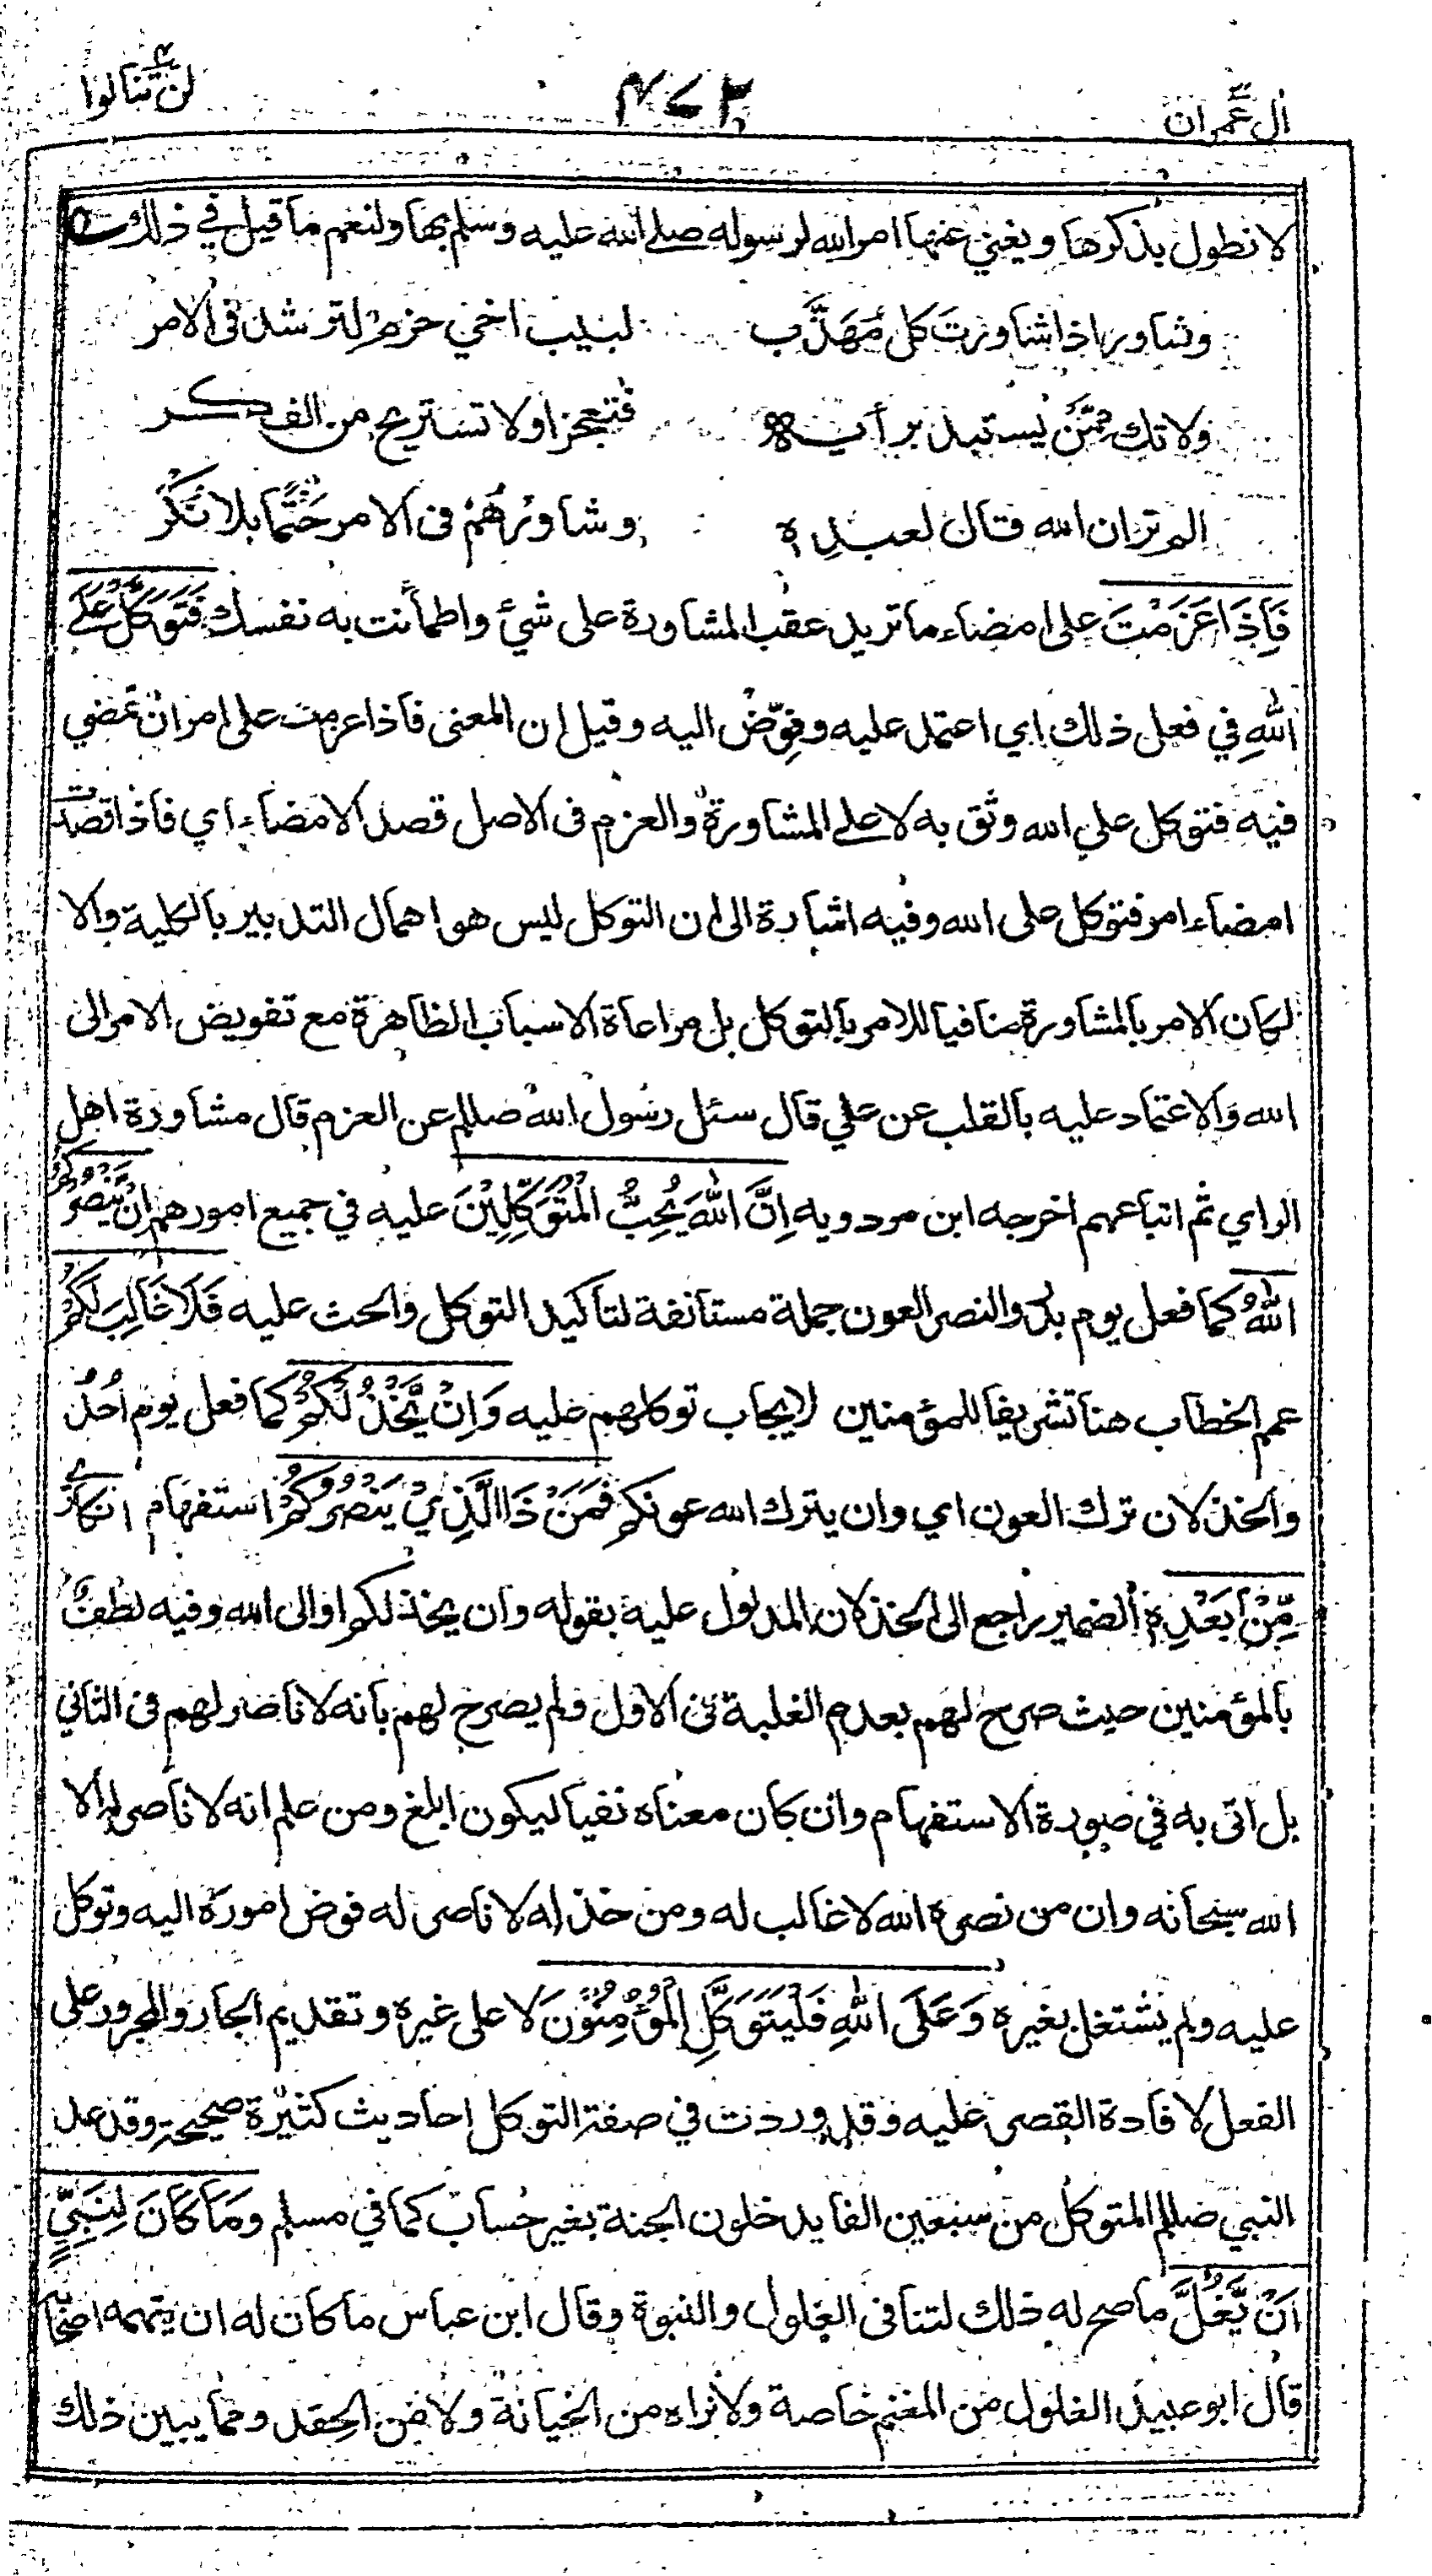 لن تنالوا ٤٧٢ ال عمران
لا نطول بذكرها ويغني عنها امر الله لرسوله صلى الله عليه وسلم بها ولنعم ما قيل في ذلك
وشاور اذا شاورت كل مُهَذَّب لبيب اخي حزم لترشد فى الامر
ولا تك مِمَّنْ يستبد برأيه فتعجز او لا تستريح من الفكر
الم تر ان الله قال لعبدِه وشاوِرْهُمْ فى الامر حَتْمًا بلا نُكْر
فَاِذَا عَزَمْتَ على امضاء ما تريد عقب المشاورة على شئ واطمأنت به نفسك فَتَوَكَّلْ عَلَى
اللهِ في فعل ذلك اي اعتمد عليه وفوّض اليه وقيل ان المعنى فاذا عزمت على امر ان تمضي
فيه فتوكل على الله وثق به لا على المشاورة والعزم فى الاصل قصد الامضاء اي فاذا قصدت
امضاء امر فتوكل على الله وفيه اشارة الى ان التوكل ليس هو اهمال التدبير بالكلية والا
لكان الامر بالمشاورة منافيا للامر بالتوكل بل مراعاة الاسباب الظاهرة مع تفويض الامر الى
الله والاعتماد عليه بالقلب عن علي قال سئل رسول الله صللم عن العزم قال مشاورة اهل
الراي ثم اتباعهم اخرجه ابن مردويه اِنَّ اللهَ يُحِبُّ الْمُتَوَكِّلِيْنَ عليه في جميع امورهم اِنْ يَّنْصُرْكُمُ
اللهُ كما فعل يوم بدر والنصر العون جملة مستانفة لتاكيد التوكل والحث عليه فَلَا غَالِبَ لَكُمْ
عمم الخطاب هنا تشريفا للمؤمنين لايجاب توكلهم عليه وَاِنْ يَّخْذُلْكُمْ كما فعل يوم اُحُد
والخذلان ترك العون اي وان يترك الله عونكم فَمَنْ ذَا الَّذِيْ يَنْصُرُكُمْ استفهام انكاري
مِّنْ بَعْدِهٖ الضمير راجع الى الخذلان المدلول عليه بقوله وان يخذلكم او الى الله وفيه لطف
بالمؤمنين حيث صرح لهم بعدم الغلبة فى الاول ولم يصرح لهم بانه لا ناصر لهم فى الثاني
بل اتى به في صورة الاستفهام وان كان معناه نفيا ليكون ابلغ ومن علم انه لا ناصر له الا
الله سبحانه وان من نصره الله لا غالب له ومن خذله لا ناصر له فوض اموره اليه وتوكل
عليه ولم يشتغل بغيره وَعَلَى اللهِ فَلْيَتَوَكَّلِ الْمُؤْمِنُوْنَ لا على غيره وتقديم الجار والمجرور على
الفعل لافادة القصر عليه وقد وردت في صفة التوكل احاديث كثيرة صحيحة وقد عد
النبي صللم المتوكل من سبعين الفا يدخلون الجنة بغير حساب كما في مسلم وَمَا كَانَ لِنَبِيٍّ
اَنْ يَّغُلَّ ما صح له ذلك لتنافى الغلول والنبوة وقال ابن عباس ما كان له ان يتهمه اصحابه
قال ابو عبيد الغلول من المغنم خاصة ولا نراه من الخيانة ولا من الحِقد ومما يبين ذلك